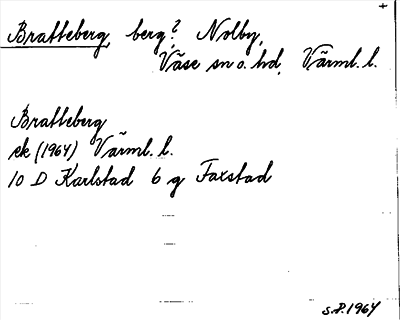 Bratteberg, berg? Nolby,
Väse sn o. hd, Värml. l.
Bratteberg
ek (1964) Värml. l.
10 D Karlstad 6 g Faxstad
S.P. 1964